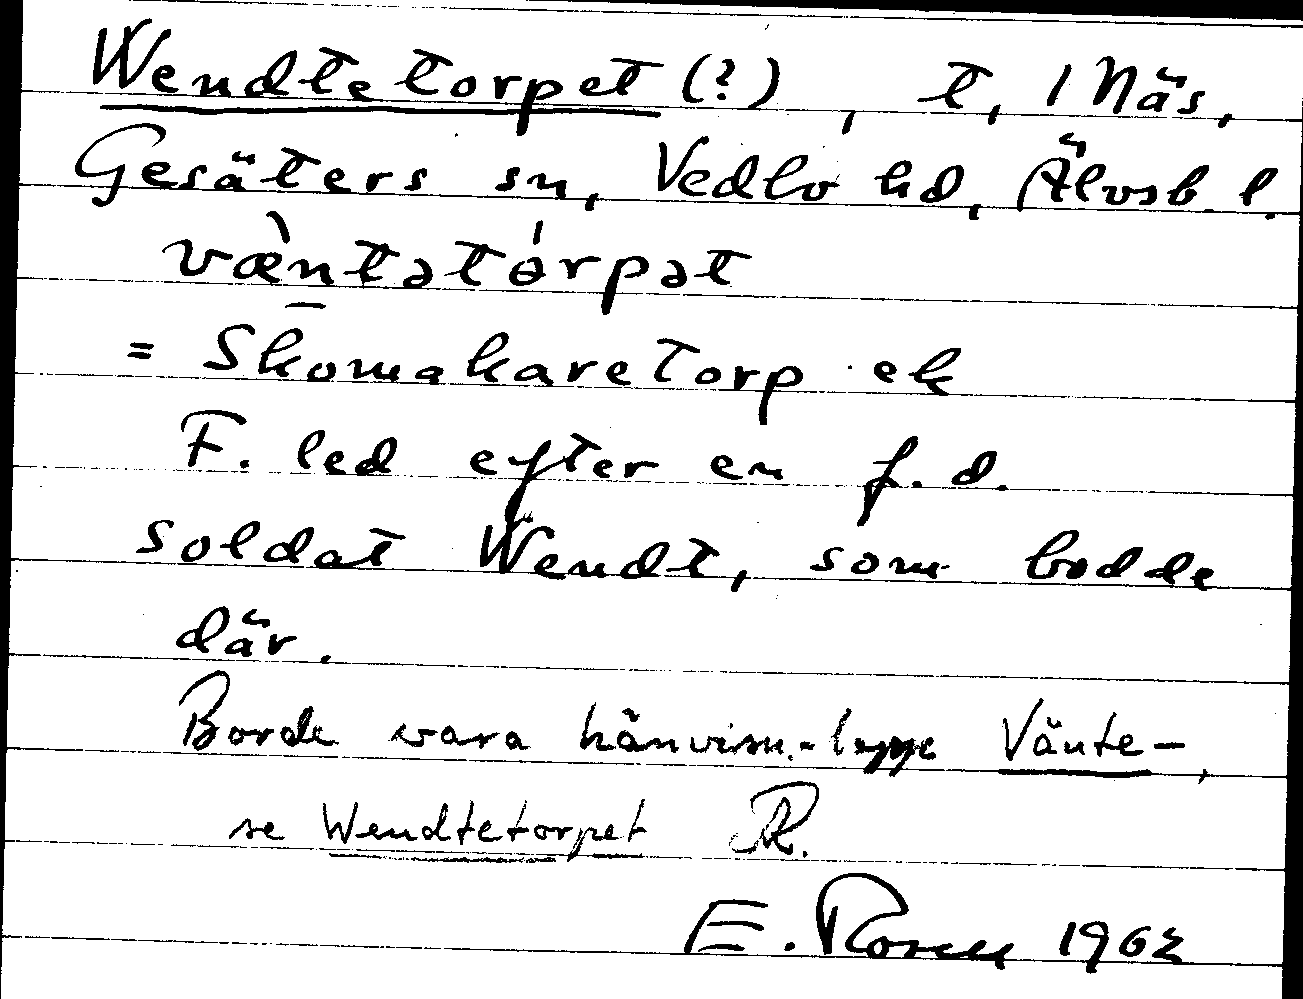 Wendtetorpet (?), t, 1 Näs,
Gesäters sn, Vedbo hd, Älvsb. l.
væ̀ntətɵ́rpət
= Skōmakaretorp ek
F. led efter en f. d.
soldat Wendt, som bodde
där.
Borde vara hänvisn.-lapp Vänte-,
se Wendtetorpet R.
E. Rosen 1962